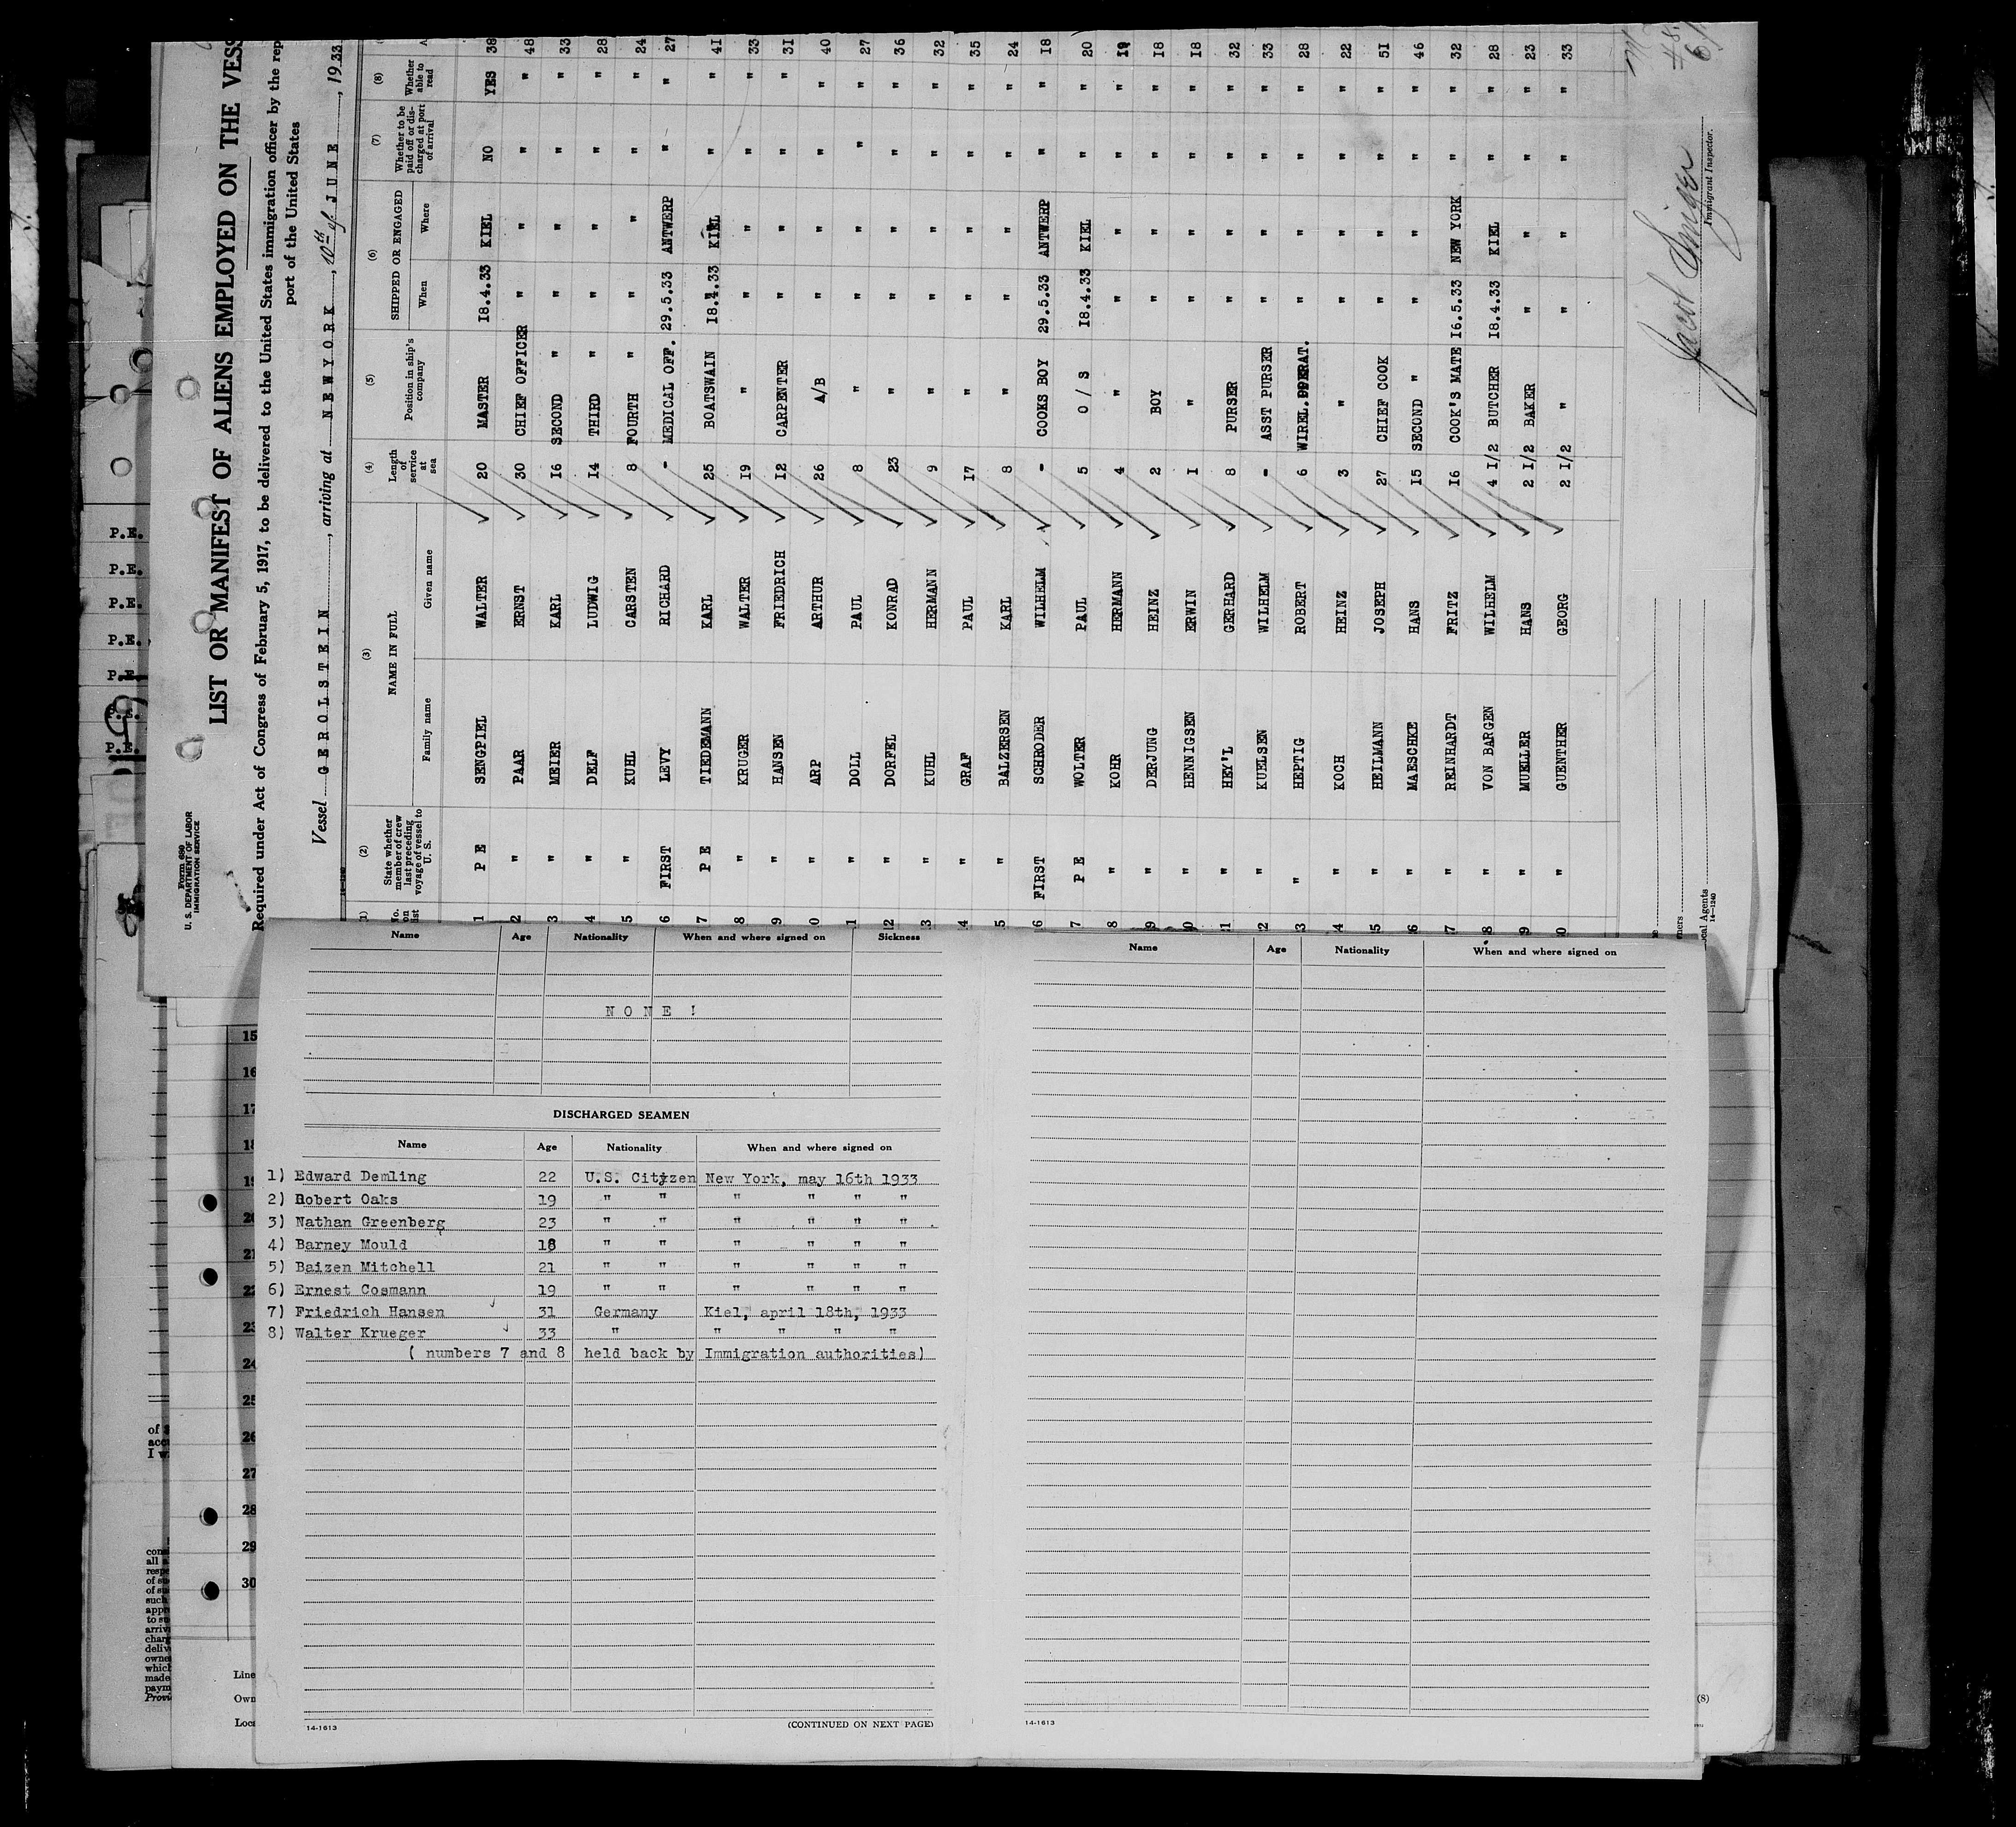 Form 680
U. S. DEPARTMENT OF LABOR
IMMIGRATION SERVICE
LIST OR MANIFEST OF ALIENS EMPLOYED ON THE VESS
Required under Act of Congress of February 5, 1917, to be delivered to the United States immigration officer by the rep
port of the United States
Vessel GEROLSTEIN, arriving at NEWYORK, 10th of JUNE, 1933
(1) (2) (3) (4) (5) (6) (7) (8)
No. on list State whether member of crew last preceding voyage of vessel to U. S. NAME IN FULL Family name Given name Length of service at sea Position in ship's company SHIPPED OR ENGAGED When Where Whether to be paid off or discharged at port of arrival Whether able to read A
1 P E SENGPIEL WALTER 20 MASTER 18.4.33 KIEL NO YES 38
2 " PAAR ERNST 30 CHIEF OFFICER " " " " 48
3 " MEIER KARL 16 SECOND " " " " " 33
4 " DELF LUDWIG 14 THIRD " " " " " 28
5 " KUHL CARSTEN 8 FOURTH " " " " " 24
6 FIRST LEVY RICHARD - MEDICAL OFF. 29.5.33 ANTWERP " " 27
7 P E TIEDEMANN KARL 25 BOATSWAIN 18.4.33 KIEL " " 41
8 " KRUGER WALTER 19 " " " " " 33
9 " HANSEN FRIEDRICH 12 CARPENTER " " " " 31
0 " ARP ARTHUR 26 A/B " " " " 40
1 " DOLL PAUL 8 " " " " " 27
2 " DORFEL KONRAD 23 " " " " " 36
3 " KUHL HERMANN 9 " " " " " 32
4 " GRAF PAUL 17 " " " " " 35
5 " BALZERSEN KARL 8 " " " " " 24
6 FIRST SCHRODER WILHELM - COOKS BOY 29.5.33 ANTWERP " " 18
7 P E WOLTER PAUL 5 O / S 18.4.33 KIEL " " 20
8 " KOHR HERMANN 4 " " " " " 19
9 " DERJUNG HEINZ 2 BOY " " " " 18
0 " HENNIGSEN ERWIN 1 " " " " " 18
1 " HEY'L GERHARD 8 PURSER " " " " 32
2 " KUELSEN WILHELM - ASST PURSER " " " " 33
3 " HEPTIG ROBERT 6 WIREL. " " " " 28
4 " KOCH HEINZ 3 " " " " " 22
5 " HEILMANN JOSEPH 27 CHIEF COOK " " " " 51
6 " MAESCHKE HANS 15 SECOND " " " " " 46
7 " REINHARDT FRITZ 16 COOK'S MATE 16.5.33 NEW YORK " " 32
8 " VON BARGEN WILHELM 4 1/2 BUTCHER 18.4.33 KIEL " " 28
9 " MUELLER HANS 2 1/2 BAKER " " " " 23
0 " GUENTHER GEORG 2 1/2 " " " " " 33
Immigrant Inspector.
ocal Agents
14-1240
P.E.
P.E.
P.E.
P.E.
P.E.
P.E.
Name Age Nationality When and where signed on Sickness
NONE!
DISCHARGED SEAMEN
Name Age Nationality When and where signed on
1) Edward Demling 22 U.S. Citizen New York, may 16th 1933
2) Robert Oaks 19 " " " " " "
3) Nathan Greenberg 23 " " " " " "
4) Barney Mould 18 " " " " " "
5) Baizen Mitchell 21 " " " " " "
6) Ernest Cosmann 19 " " " " " "
7) Friedrich Hansen 31 Germany Kiel, april 18th, 1933
8) Walter Krueger 33 " " " " "
( numbers 7 and 8 held back by Immigration authorities)
14-1613 (CONTINUED ON NEXT PAGE)
Name Age Nationality When and where signed on
14-1613
15
16
17
18
19
20
21
22
23
24
25
26
27
28
29
30
Line
Own
Loca
(8)